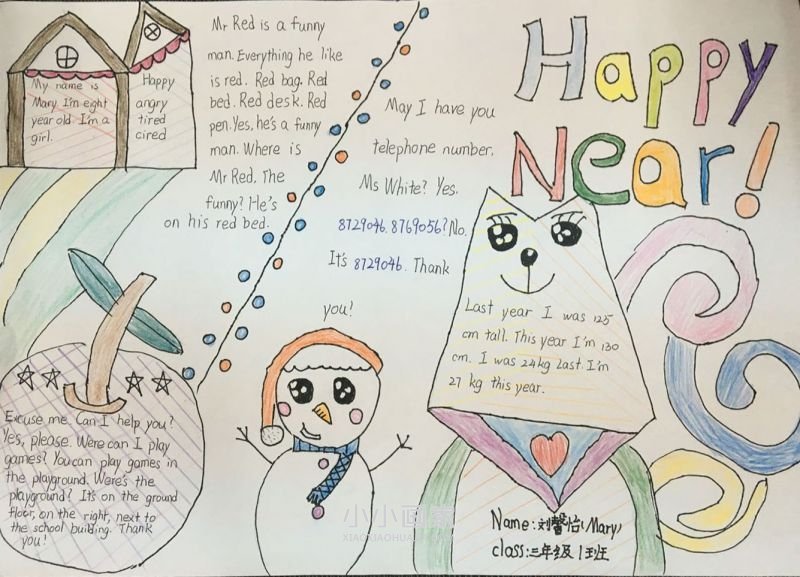 Happy
Near!
My name is
Mary. I'm eight
year old. I'm a
girl.
Happy
angry
tired
cired
Mr Red is a funny
man. Everything he like
is red. Red bag. Red
bed. Red desk. Red
pen. Yes, he's a funny
man. Where is
Mr Red. The
funny? He's
on his red bed.
May I have you
telephone number.
Ms White? Yes.
8729046. 8769056? No.
It's 8729046. Thank
you!
Last year I was 125
cm tall. This year I'm 130
cm. I was 24kg last. I'm
27 kg this year.
Excuse me. Can I help you?
Yes, please. Were can I play
games? You can play games in
the playground. Were's the
playground? It's on the ground
floor, on the right, next to
the school building. Thank
you!
Name: 刘馨怡(Mary)
class: 三年级1班
小小画家
XIAOXIAOHUA